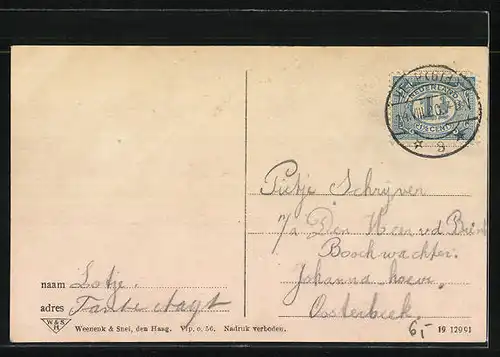 NEDERLAND
1½ CENT
Pietje Schrijver
p/a Den Heer v.d. Brink
Boschwachter.
Johanna hoeve.
Oosterbeek.
naam Lotje.
adres Tante
W & S
H
Weenenk & Snel, den Haag. Vip. o. 56. Nadruk verboden.
19 12991
6,-